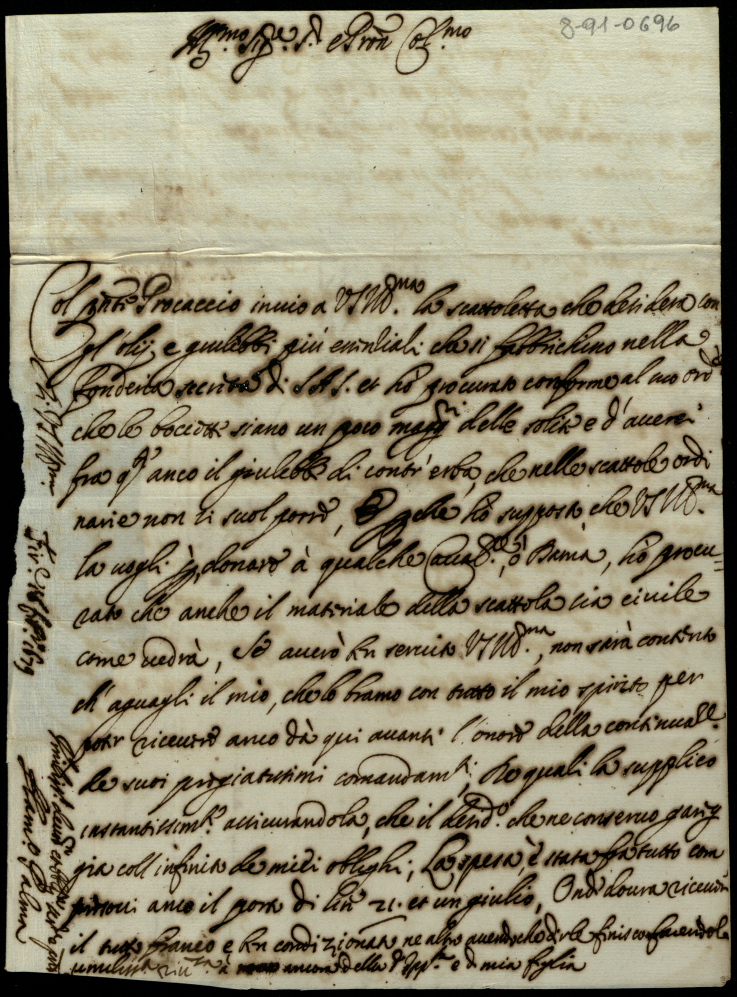 8-91-0696
Ill.mo Sig.re S.r e Pron Col.mo
Col pnte Procaccio inuio a VS Ill.ma la scattoletta che desidera con
gl'olij e giulebbi piú essentiali che si fabbrichino nella
fonderia secreta di S.A.S. et hò procurato conforme al suo ord.e
che le boccette siano un poco magg.ri delle solite e d'auerci
fra q.ti anco il giulebbe di contr'erba, che nelle scattole ordi
narie non si suol porre, E pche hò supposto, che VS Ill.ma
la uogli p donare à qualche Caual.re, ò Dama, hò procu-
rato che anche il materiale della scattola sia ciuile
come uedrà, Se auerò ben seruita VS Ill.ma, non sarà contento
ch'aguagli il mio, che lo bramo con tutto il mio spirito per
poter riceuere anco dà qui auanti l'onore della continuat.e
de suoi pregiatissimi comandam.ti, de quali la supplico
instantissim.te assicurandola, che il desid.o che ne conseruo pareg
gia coll'infinità de miei oblighi; La spesa, è stata fra tutto com
presoui anco il porto di lire 21. et un giulio, Onde dourà riceuere
il tutto franco e ben condizionato, ne altro auendo che dirle finisco facendole
umiliss.ma riu.za à ancora della S.ra e di mia figlia
Di VS Ill.ma
Fir.e 1679